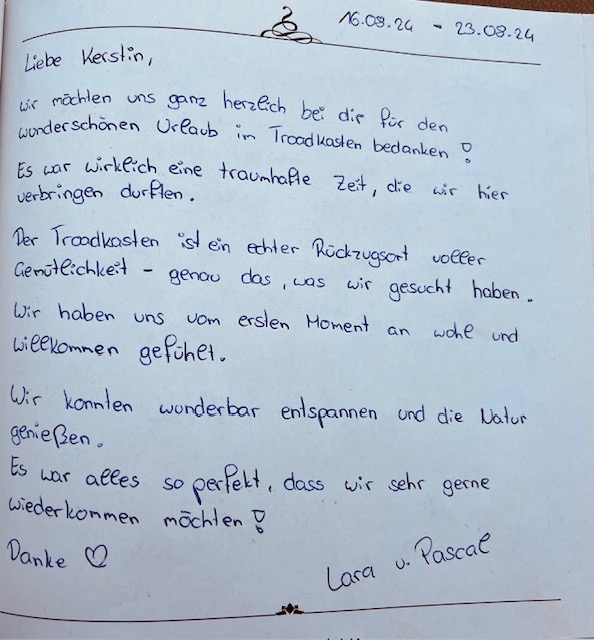 16.09.24 - 23.09.24
Liebe Kerstin,
wir möchten uns ganz herzlich bei dir für den
wunderschönen Urlaub im Troadkasten bedanken!
Es war wirklich eine traumhafte Zeit, die wir hier
verbringen durften.
Der Troadkasten ist ein echter Rückzugsort voller
Gemütlichkeit - genau das, was wir gesucht haben.
Wir haben uns vom ersten Moment an wohl und
willkommen gefühlt.
Wir konnten wunderbar entspannen und die Natur
genießen.
Es war alles so perfekt, dass wir sehr gerne
wiederkommen möchten!
Danke ♡
Lara u. Pascal